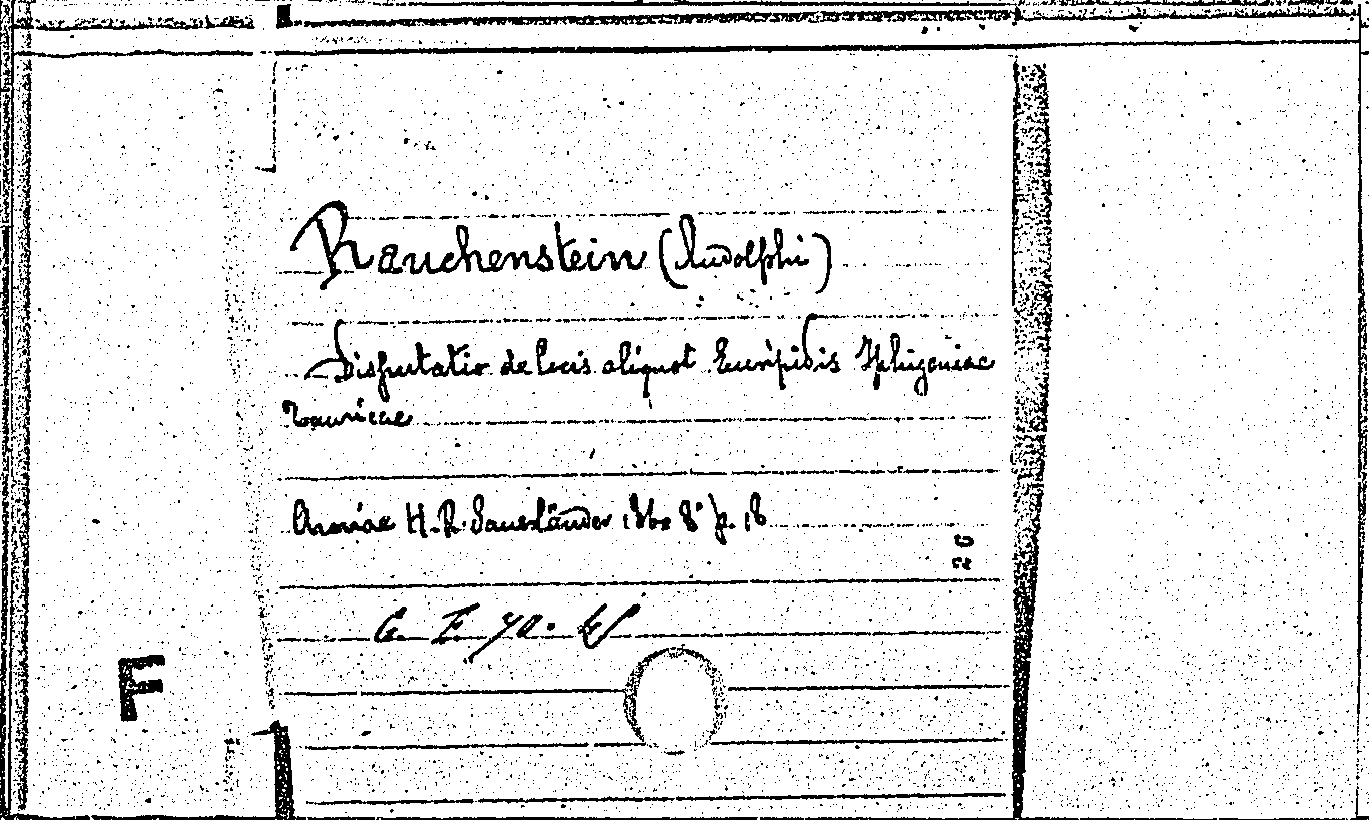 Rauchenstein (Rudolphi)
Disputatio de locis aliquot Euripidis Iphigeniae
Tauricae
Aroviae H. R. Sauerländer 1860 8° p. 18
20
G. F.
F